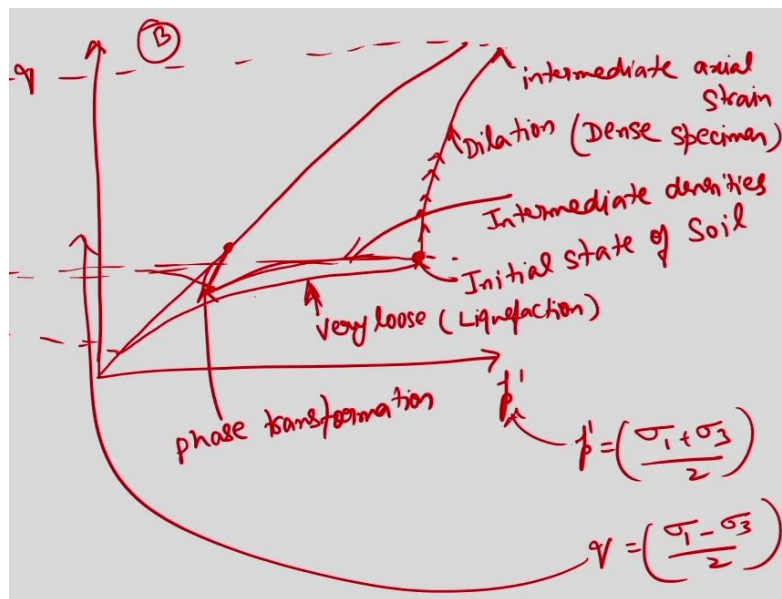 B
q
intermediate axial
strain
Dilation (Dense specimen)
Intermediate densities
Initial state of soil
Very loose (Liquefaction)
p'
phase transformation
p' = (σ1 + σ3 / 2)
q = (σ1 - σ3 / 2)